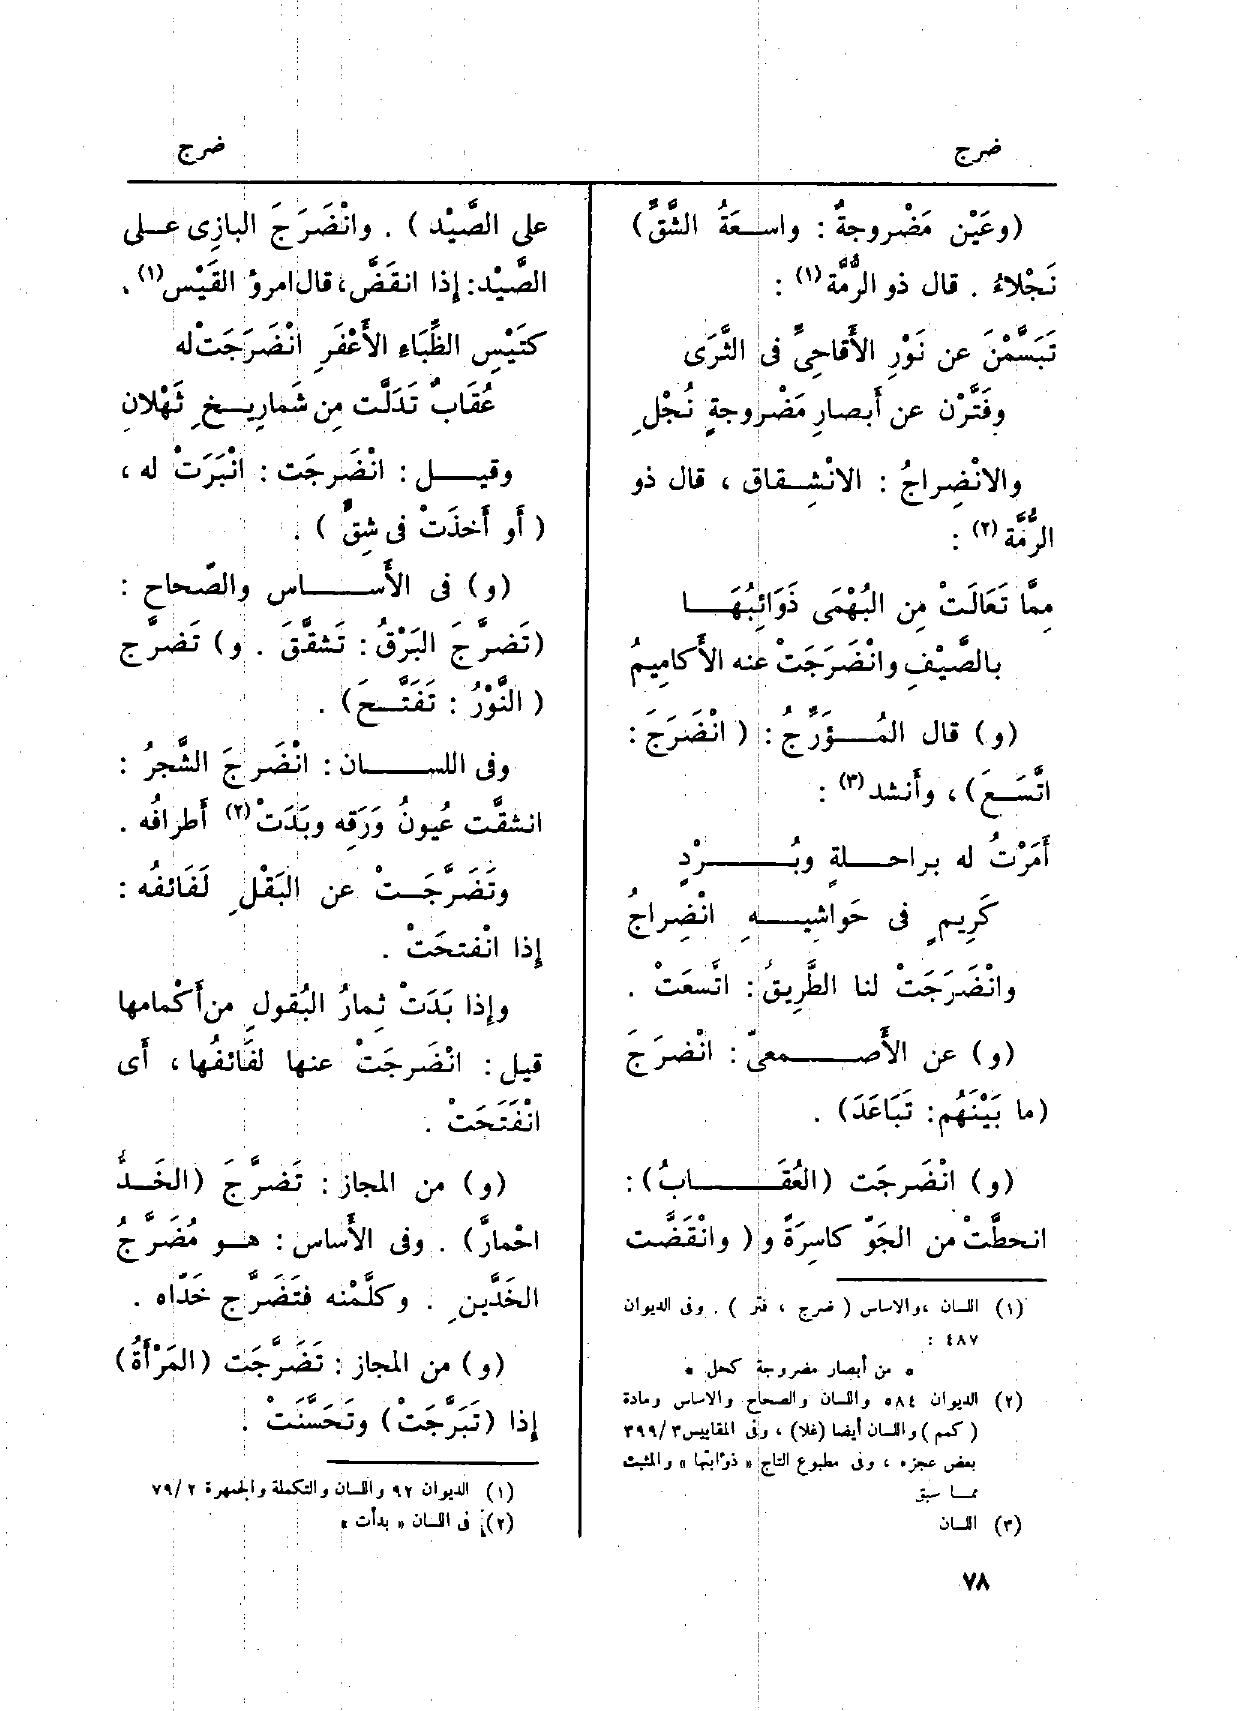 ضرج
ضرج
(وعَيْن مَضْروجةٌ : واسعَةُ الشَّقِّ)
نَجْلاءُ . قال ذو الرُّمَّة (١) :
تَبَسَّمْنَ عن نَوْرِ الأَقاحِيِّ فى الثَّرَى
وفَتَّرْن عن أَبصارِ مَضْروجةٍ نُجْلِ
والانْضِراجُ : الانْشِقاق ، قال ذو
الرُّمَّة (٢) :
مِمَّا تَعَالَتْ مِن البُهْمَى ذَوَائِبُهَا
بالصَّيْفِ وانْضَرَجَتْ عنه الأَكامِيمُ
(و) قال المُؤَرِّجُ : ( انْضَرَجَ :
اتَّسَعَ) ، وأَنشد (٣) :
أَمَرْتُ له براحلةٍ وبُرْدٍ
كَرِيمٍ فى حَواشِيهِ انْضِراجُ
وانْضَرَجَتْ لنا الطَّرِيقُ : اتَّسعَتْ .
(و) عن الأَصمعيّ : انْضرَجَ
(ما بَيْنَهُم : تَبَاعَدَ) .
(و) انْضَرجَت (العُقَابُ) :
انحطَّتْ من الجَوّ كاسِرَةً و( وانْقَضَّت
(١) اللسان ، والاساس ( ضرج ، فتر ) . وفى الديوان
٤٨٧ :
« من أبصار مضروجة كحل »
(٢) الديوان ٥٨٤ واللسان والصحاح والاساس ومادة
( كمم ) واللسان أيضا (غلا) ، وفى المقاييس ٣٩٩/٣
بعض عجزه ، وفى مطبوع التاج « ذوَّابتها » والمثبت
مما سبق
(٣) اللسان
على الصَّيْد ) . وانْضَرَجَ البازِى على
الصَّيْد : إِذا انقَضَّ ، قال امرؤُ القَيْس (١) .
كتَيْسِ الظِّبَاءِ الأَعْفَرِ انْضَرَجَتْ له
عُقَابٌ تَدَلَّت مِن شَمارِيخِ ثَهْلانِ
وقيل : انْضَرجَت : انْبَرَتْ له ،
( أَو أَخذَتْ فى شِقٍّ ) .
(و) فى الأَساس والصّحاح :
(تَضرَّجَ البَرْقُ : تَشقَّقَ . و) تَضرَّج
( النَّوْرُ : تَفَتَّحَ) .
وفى اللسان : انْضَرجَ الشَّجرُ :
انشقَّت عُيونُ وَرَقه وبَدَتْ (٢) أَطرافُه .
وتَضَرَّجَتْ عن البَقْلِ لَفَائفُه :
إِذا انْفتحَتْ .
وإِذا بَدَتْ ثِمارُ البُقولِ من أَكْمامها
قيل : انْضَرجَتْ عنها لفَائفُها ، أَى
انْفَتَحَتْ .
(و) من المجاز : تَضرَّجَ (الخَدُّ
احْمارَّ) . وفى الأَساس : هو مُضَرَّجُ
الخَدَّينِ . وكلَّمْته فتَضَرَّج خَدّاه .
(و) من المجاز : تَضَرَّجَت (المَرْأَةُ)
إِذا (تَبَرَّجَتْ) وتَحَسَّنَتْ .
(١) الديوان ٩٢ واللسان والتكملة والجمهرة ٧٩/٢
(٢) فى اللسان « بدأت »
٧٨